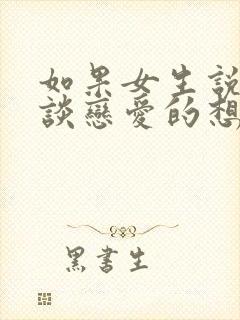 如果女生說
談戀愛的想
黑書生